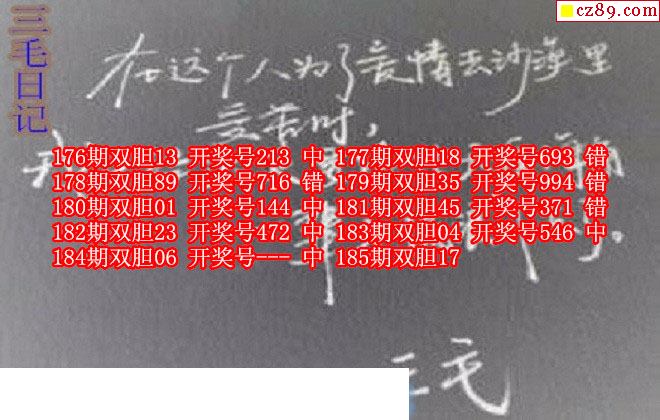 cz89.com
三毛日记
在这个人为了爱情去沙漠里
受苦时,
176期双胆13 开奖号213 中 177期双胆18 开奖号693 错
178期双胆89 开奖号716 错 179期双胆35 开奖号994 错
180期双胆01 开奖号144 中 181期双胆45 开奖号371 错
182期双胆23 开奖号472 中 183期双胆04 开奖号546 中
184期双胆06 开奖号--- 中 185期双胆17
三毛